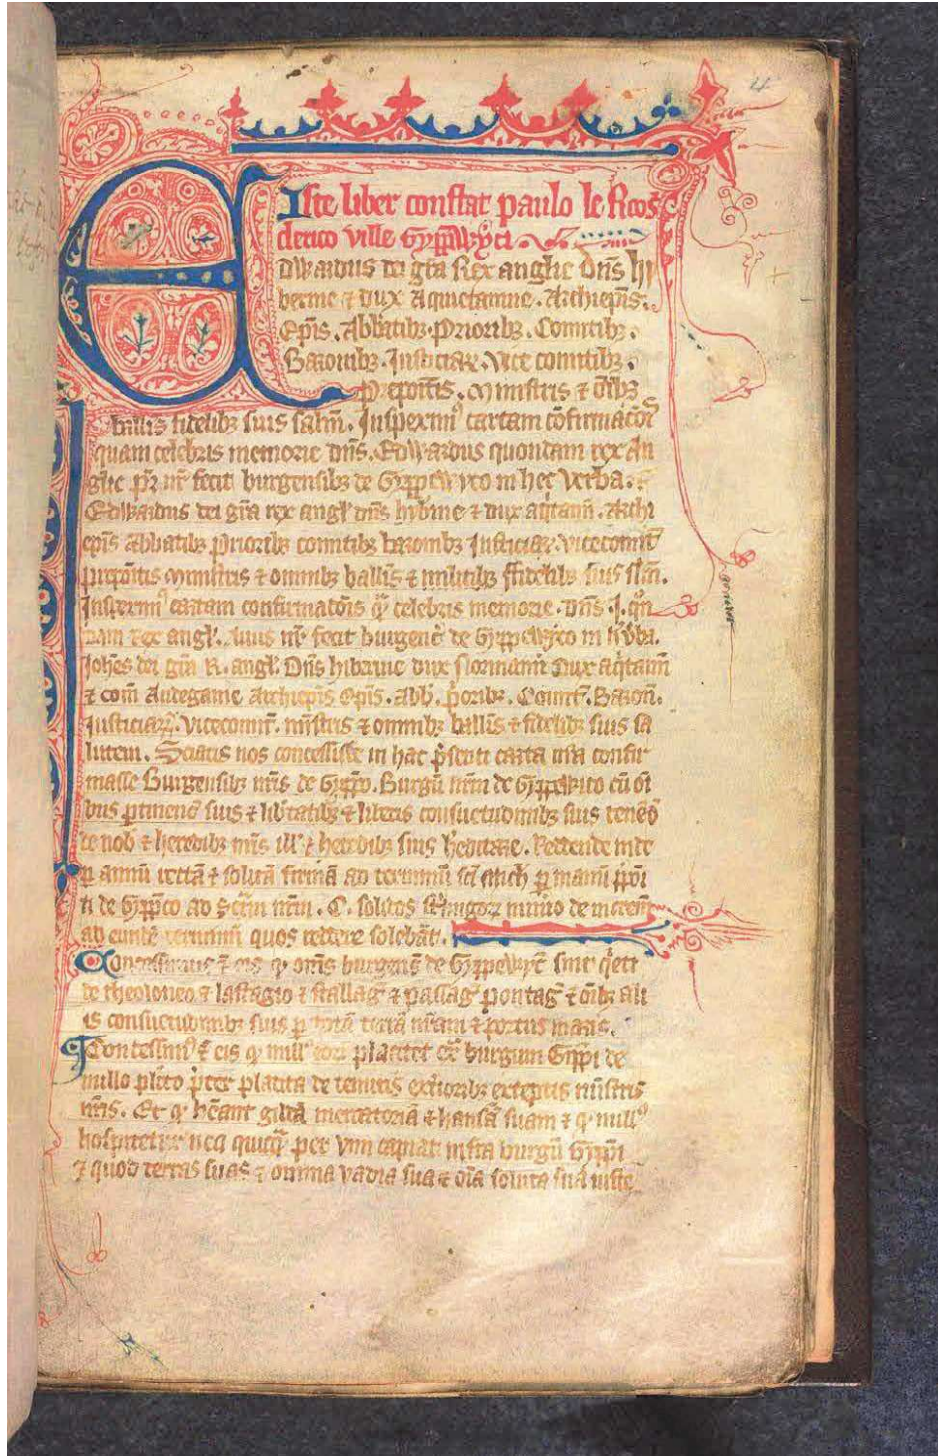 4
Iste liber constat paulo le Rcos
clerico ville Gyppwyci
Edwardus dei gra Rex anglie Dn̄s hi
bernie ⁊ dux Aquietannie. Archiep̄is.
Ep̄is. Abbatibꝫ. Prioribꝫ. Comitibꝫ.
Baronibꝫ. Iusticiar. Vice comitibꝫ.
P̄epoitis. Ministris ⁊ oībꝫ
ballis fidelibꝫ suis salt̄m. Inspeximꝰ cartam cōfirmac̄ois
quam celebris memorie dn̄s. Edwardus quondam rex An
glie p̄r nr̄ fecit burgensibꝫ de Gyppewyco in hec verba.
Edwardus dei gr̄a rex angl̄ dn̄s hyb̄nie ⁊ dux aq̄tann̄. Archi
ep̄is Abbatibꝫ Prioribꝫ comitibꝫ baronibꝫ Iusticiar. vicecomit̄
prepoitis ministris ⁊ omnibꝫ ballis ⁊ fidelibꝫ suis sl̄m.
Inspeximꝰ cartam confirmac̄ois q̄m celebris memorie. Dn̄s. J. q̄n
dam rex angl̄. Auus nr̄ fecit burgenc̄ de Gyppewyco in h̄ v̄ba.
Joh̄es dei gr̄a R. angl̄. Dn̄s hibernie dux Normann̄ Dux aq̄tann̄
⁊ com̄ Andegauie Archiep̄is Ep̄is. Abb̄. p̄oribꝫ. Comit̄. Baron̄.
Iusticiar̄. vicecomit̄. mīstris ⁊ omnibꝫ ballis ⁊ fidelibꝫ suis sa
lutem. Sciatis nos concessisse in hac p̄senti carta nr̄a confir
masse Burgensibꝫ nr̄is de Gyppo. Burgū nr̄m de Gyppewico cū oī
bus ptinenc̄ suis ⁊ lib̄tatibꝫ ⁊ liberis consuetudinibꝫ suis tenēd̄
de nob̄ ⁊ heredibꝫ nr̄is ill̄ ⁊ heredibꝫ suis h̄editarie. Reddendo inde
p annū rectā ⁊ solitā firmā ad terminū sc̄i mich̄ p manū p̄poi
ti de Gyppico ad sc̄cm nr̄m. C. solidos st̄lingoꝝ de increm̄
ad eundē terminū quos reddere solebāt.
Concessimus ⁊ eis qꝫ om̄s burgens̄ de Gyppewyc̄ sint q̄eti
de theoloneo ⁊ lastagio ⁊ stallaḡ ⁊ passaḡ pontaḡ ⁊ oībꝫ ali
is consuetudinibꝫ suis p totā terrā nr̄am ⁊ portus maris.
Concessimꝰ ⁊ eis qꝫ nullꝰ eoꝝ placitet ext̄ burgum Gyppi de
nullo pl̄ito p̄ter placita de tenuris ext̄ioribꝫ exceptis mīstris
nr̄is. Et qꝫ h̄eant gildā mercatoriā ⁊ hansā suam ⁊ qꝫ nullꝰ
hospitetur neqꝫ quicq̄ per vim capiat infra burgū Gyppi
⁊ quod terras suas ⁊ omnia vadia sua ⁊ oīa soluta sua iuste